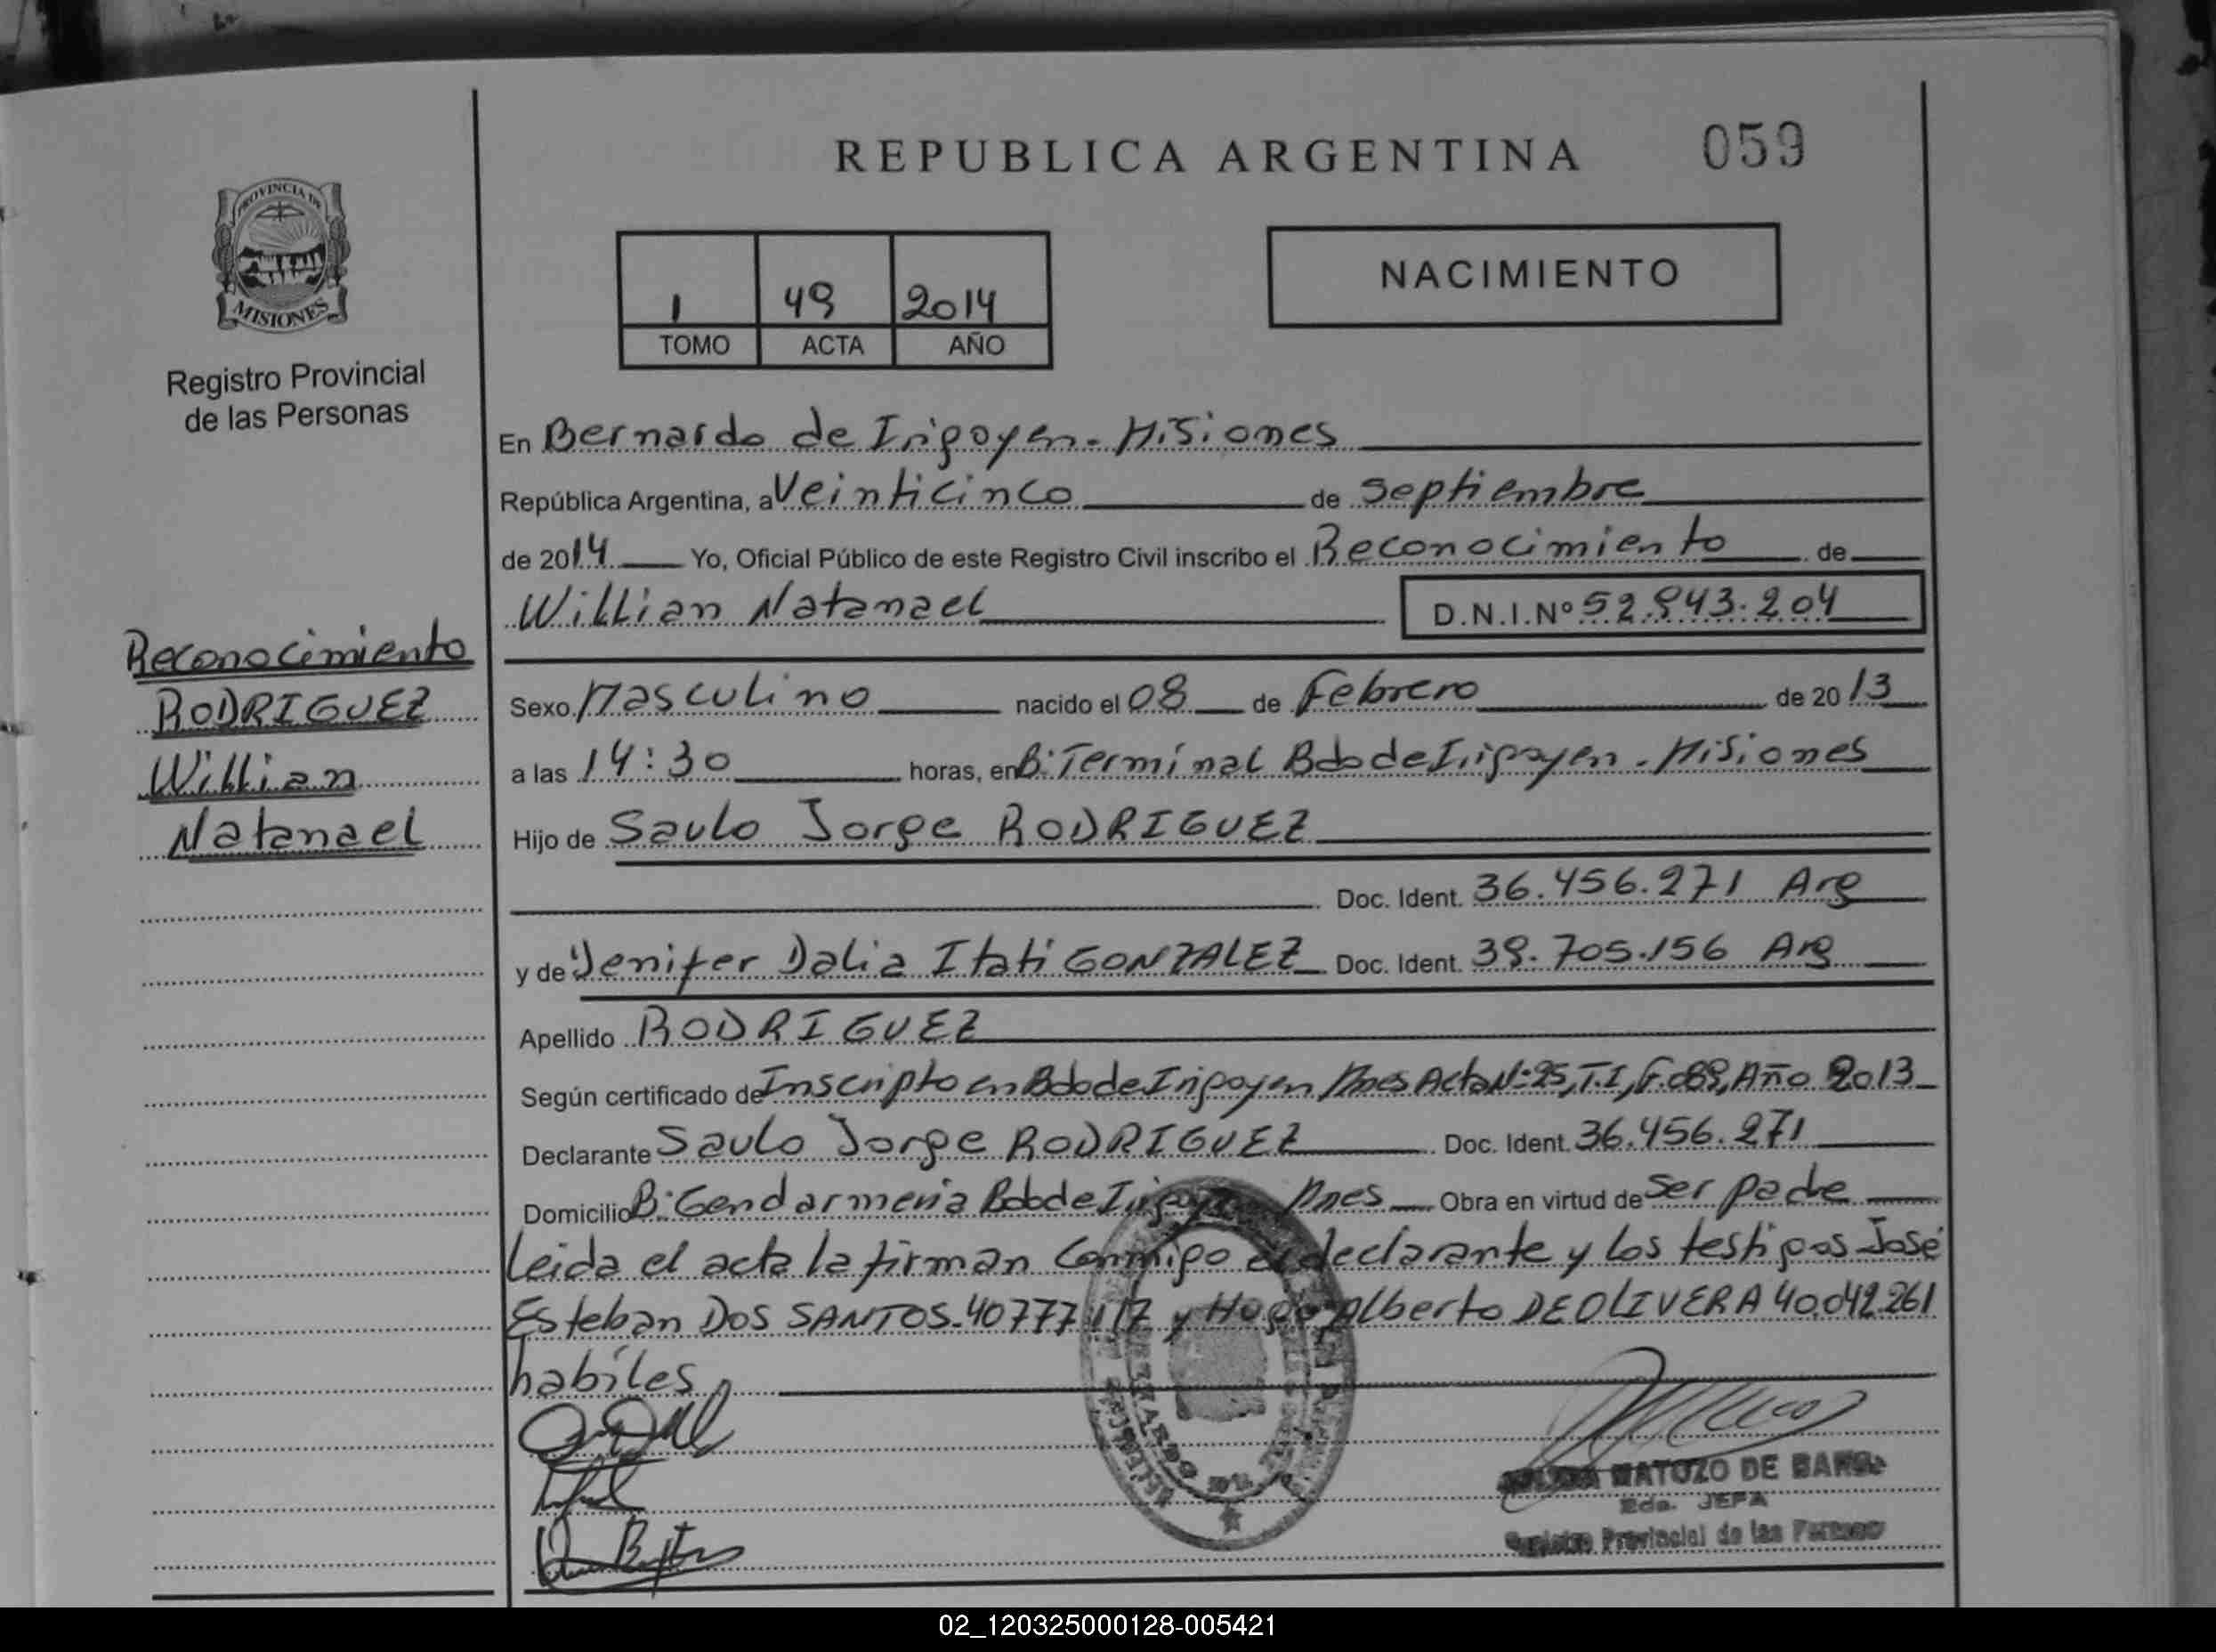 REPUBLICA ARGENTINA
059
PROVINCIA DE
MISIONES
Registro Provincial
de las Personas
1 49 2014
TOMO ACTA AÑO
NACIMIENTO
En Bernardo de Irigoyen - Misiones
República Argentina, a Veinticinco de Septiembre
de 2014 Yo, Oficial Público de este Registro Civil inscribo el Reconocimiento de
Willian Natanael D.N.I.Nº 52.943.204
Reconocimiento
RODRIGUEZ
Willian
Natanael
Sexo Masculino nacido el 08 de Febrero de 2013
a las 14:30 horas, en B: Terminal Bdo de Irigoyen - Misiones
Hijo de Saulo Jorge RODRIGUEZ
Doc. Ident. 36.456.271 Arg
y de Yenifer Dalia Itati GONZALEZ Doc. Ident. 39.705.156 Arg
Apellido RODRIGUEZ
Según certificado de Inscripto en Bdo de Irigoyen Mnes Acta Nº 25, T.I, F.089, Año 2013
Declarante Saulo Jorge RODRIGUEZ Doc. Ident. 36.456.271
Domicilio B: Gendarmeria Bdo de Irigoyen Mnes Obra en virtud de Ser padre
Leida el acta la firman Conmigo el declarante y los testigos José
Esteban DOS SANTOS - 40777117 y Hugo Alberto DE OLIVERA 40.042.261
habiles
MATOZO DE
JEFA
Registro Provincial de las Personas
02_120325000128-005421